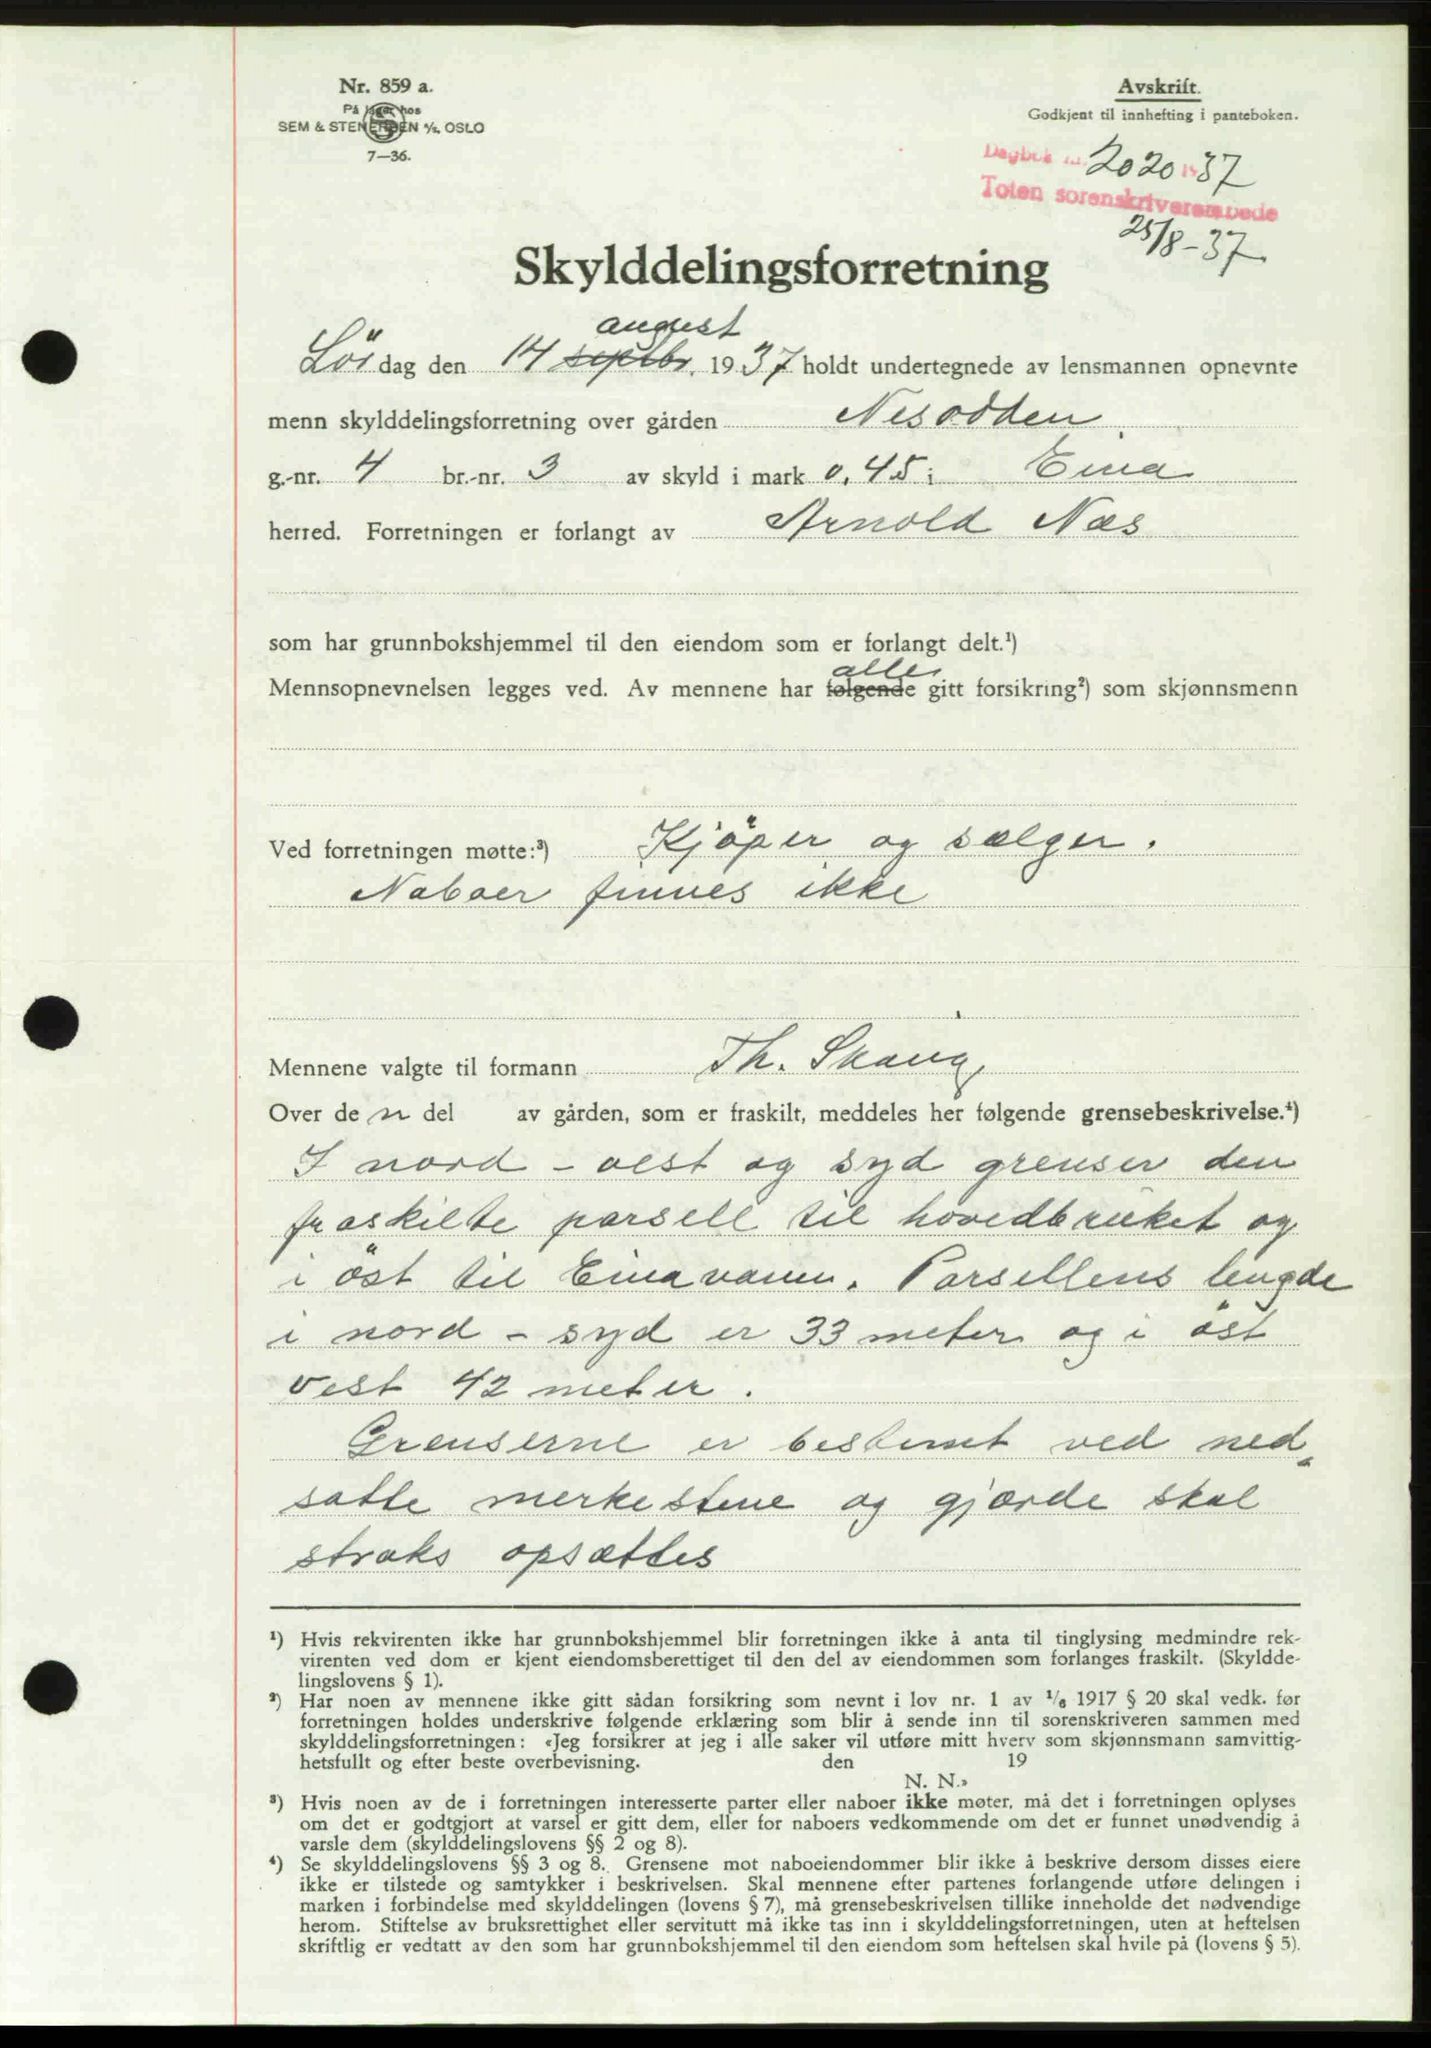 Nr. 859 a.
På lager hos
SEM & STENERSEN A/S. OSLO
7—36.
Avskrift.
Godkjent til innhefting i panteboken.
Dagbok nr. 2020 19 37
Toten sorenskriverembede
25/8-37
Skylddelingsforretning
august
Lör dag den 14 septbr. 1937 holdt undertegnede av lensmannen opnevnte
menn skylddelingsforretning over gården Nesodden
g.-nr. 4 br.-nr. 3 av skyld i mark 0,45 i Eina
herred. Forretningen er forlangt av Arnold Næs
som har grunnbokshjemmel til den eiendom som er forlangt delt.¹)
alle
Mennsopnevnelsen legges ved. Av mennene har følgende gitt forsikring²) som skjønnsmenn
Ved forretningen møtte:³) Kjöper og sælger.
Naboer finnes ikke
Mennene valgte til formann Th. Skaug
Over den del av gården, som er fraskilt, meddeles her følgende grensebeskrivelse.⁴)
I nord - vest og syd grenser den
fraskilte parsell til hovedbruket og
i öst til Einavann. Parsellens lengde
i nord - syd er 33 meter og i öst
vest 42 meter.
Grenserne er bestemt ved ned„
satte merkestene og gjærde skal
straks opsættes
¹) Hvis rekvirenten ikke har grunnbokshjemmel blir forretningen ikke å anta til tinglysing medmindre rek-
virenten ved dom er kjent eiendomsberettiget til den del av eiendommen som forlanges fraskilt. (Skyldde-
lingslovens § 1).
²) Har noen av mennene ikke gitt sådan forsikring som nevnt i lov nr. 1 av 1/6 1917 § 20 skal vedk. før
forretningen holdes underskrive følgende erklæring som blir å sende inn til sorenskriveren sammen med
skylddelingsforretningen: «Jeg forsikrer at jeg i alle saker vil utføre mitt hverv som skjønnsmann samvittig-
hetsfullt og efter beste overbevisning. den 19
N. N.»
³) Hvis noen av de i forretningen interesserte parter eller naboer ikke møter, må det i forretningen oplyses
om det er godtgjort at varsel er gitt dem, eller for naboers vedkommende om det er funnet unødvendig å
varsle dem (skylddelingslovens §§ 2 og 8).
⁴) Se skylddelingslovens §§ 3 og 8. Grensene mot naboeiendommer blir ikke å beskrive dersom disses eiere
ikke er tilstede og samtykker i beskrivelsen. Skal mennene efter partenes forlangende utføre delingen i
marken i forbindelse med skylddelingen (lovens § 7), må grensebeskrivelsen tillike inneholde det nødvendige
herom. Stiftelse av bruksrettighet eller servitutt må ikke tas inn i skylddelingsforretningen, uten at heftelsen
skriftlig er vedtatt av den som har grunnbokshjemmel til den eiendom som heftelsen skal hvile på (lovens § 5).